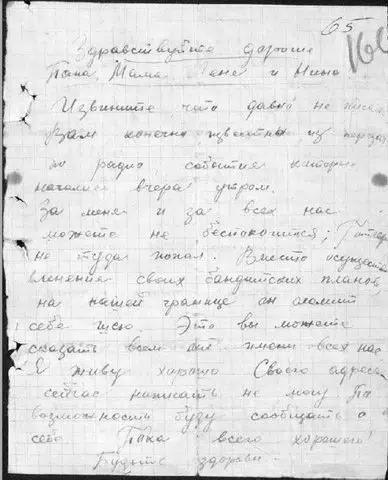 65
160
Здравствуйте дорогие
Папа, Мама, Лене и Нина
Извините что давно не писал
Вам конечно известны из передач
по радио события которые
начались вчера утром.
За меня и за всех нас
можете не беспокоиться; Гитлер
не туда попал. Вместо осуществ
вления своих бандитских планов,
на нашей границе он сломит
себе шею. Это вы можете
сказать всем от имени всех нас
Я живу хорошо Своего адреса
сейчас написать не могу По
возможности буду сообщать о
себе Пока всего хорошего!
Будьте здоровы.